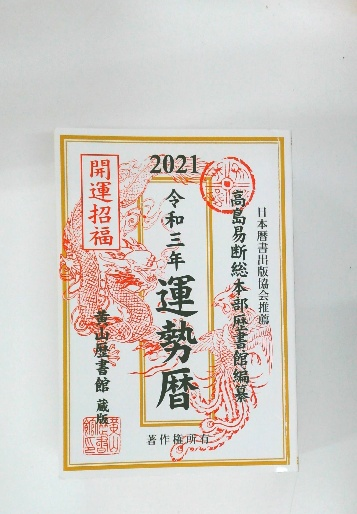 2021
日本暦書出版協会推薦
高島易断総本部暦書館編纂
令和三年
運勢暦
著作権所有
開運招福
山暦書館 蔵版